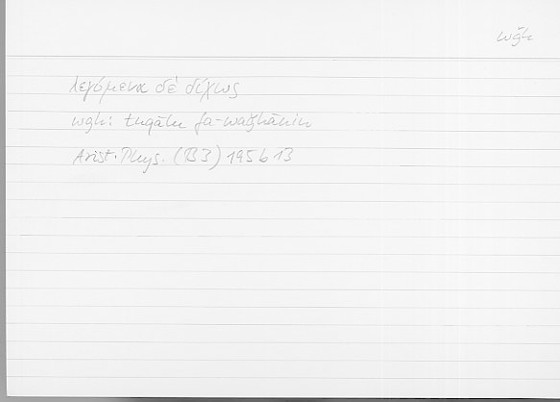 wǧh
λεγόμενα δὲ δίχως
wǧh: tuqālu fa-waǧhānin
Arist. Phys. (B3) 195 b 13